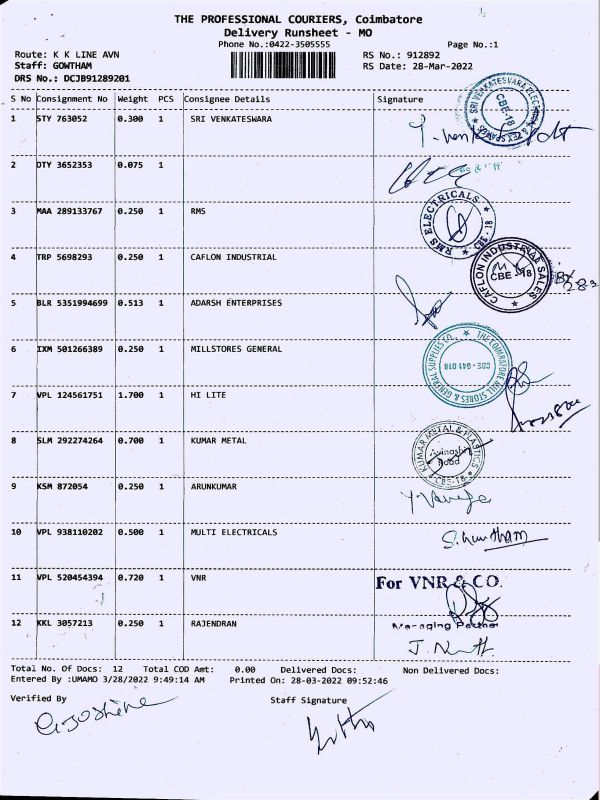 THE PROFESSIONAL COURIERS, Coimbatore
Delivery Runsheet - MO
Phone No.:0422-3505555
Page No.:1
Route: K K LINE AVN
RS No.: 912892
Staff: GOWTHAM
RS Date: 28-Mar-2022
DRS No.: DCJB91289201
S No Consignment No Weight PCS Consignee Details Signature
1 STY 763052 0.300 1 SRI VENKATESWARA
SRI VENKATESVARA ELEC
CBE-18
2 DTY 3652353 0.075 1
3 MAA 289133767 0.250 1 RMS
RMS ELECTRICALS
CBE - 18
4 TRP 5698293 0.250 1 CAFLON INDUSTRIAL
CAFLON INDUSTRIAL SALES
CBE - 18
5 BLR 5351994699 0.513 1 ADARSH ENTERPRISES
6 IXM 501266389 0.250 1 MILLSTORES GENERAL
THE COIMBATORE MILL STORES & GENERAL SUPPLIES CO.,
CBE - 641 018
7 VPL 124561751 1.700 1 HI LITE
8 SLM 292274264 0.700 1 KUMAR METAL
KUMAR METAL & PLASTICS
Avinashi
Road
CBE-18
9 KSM 872054 0.250 1 ARUNKUMAR
10 VPL 938110202 0.500 1 MULTI ELECTRICALS
11 VPL 520454394 0.720 1 VNR
For VNR & CO.
Managing Partner
12 KKL 3057213 0.250 1 RAJENDRAN
Total No. Of Docs: 12 Total COD Amt: 0.00 Delivered Docs: Non Delivered Docs:
Entered By :UMAMO 3/28/2022 9:49:14 AM Printed On: 28-03-2022 09:52:46
Verified By Staff Signature